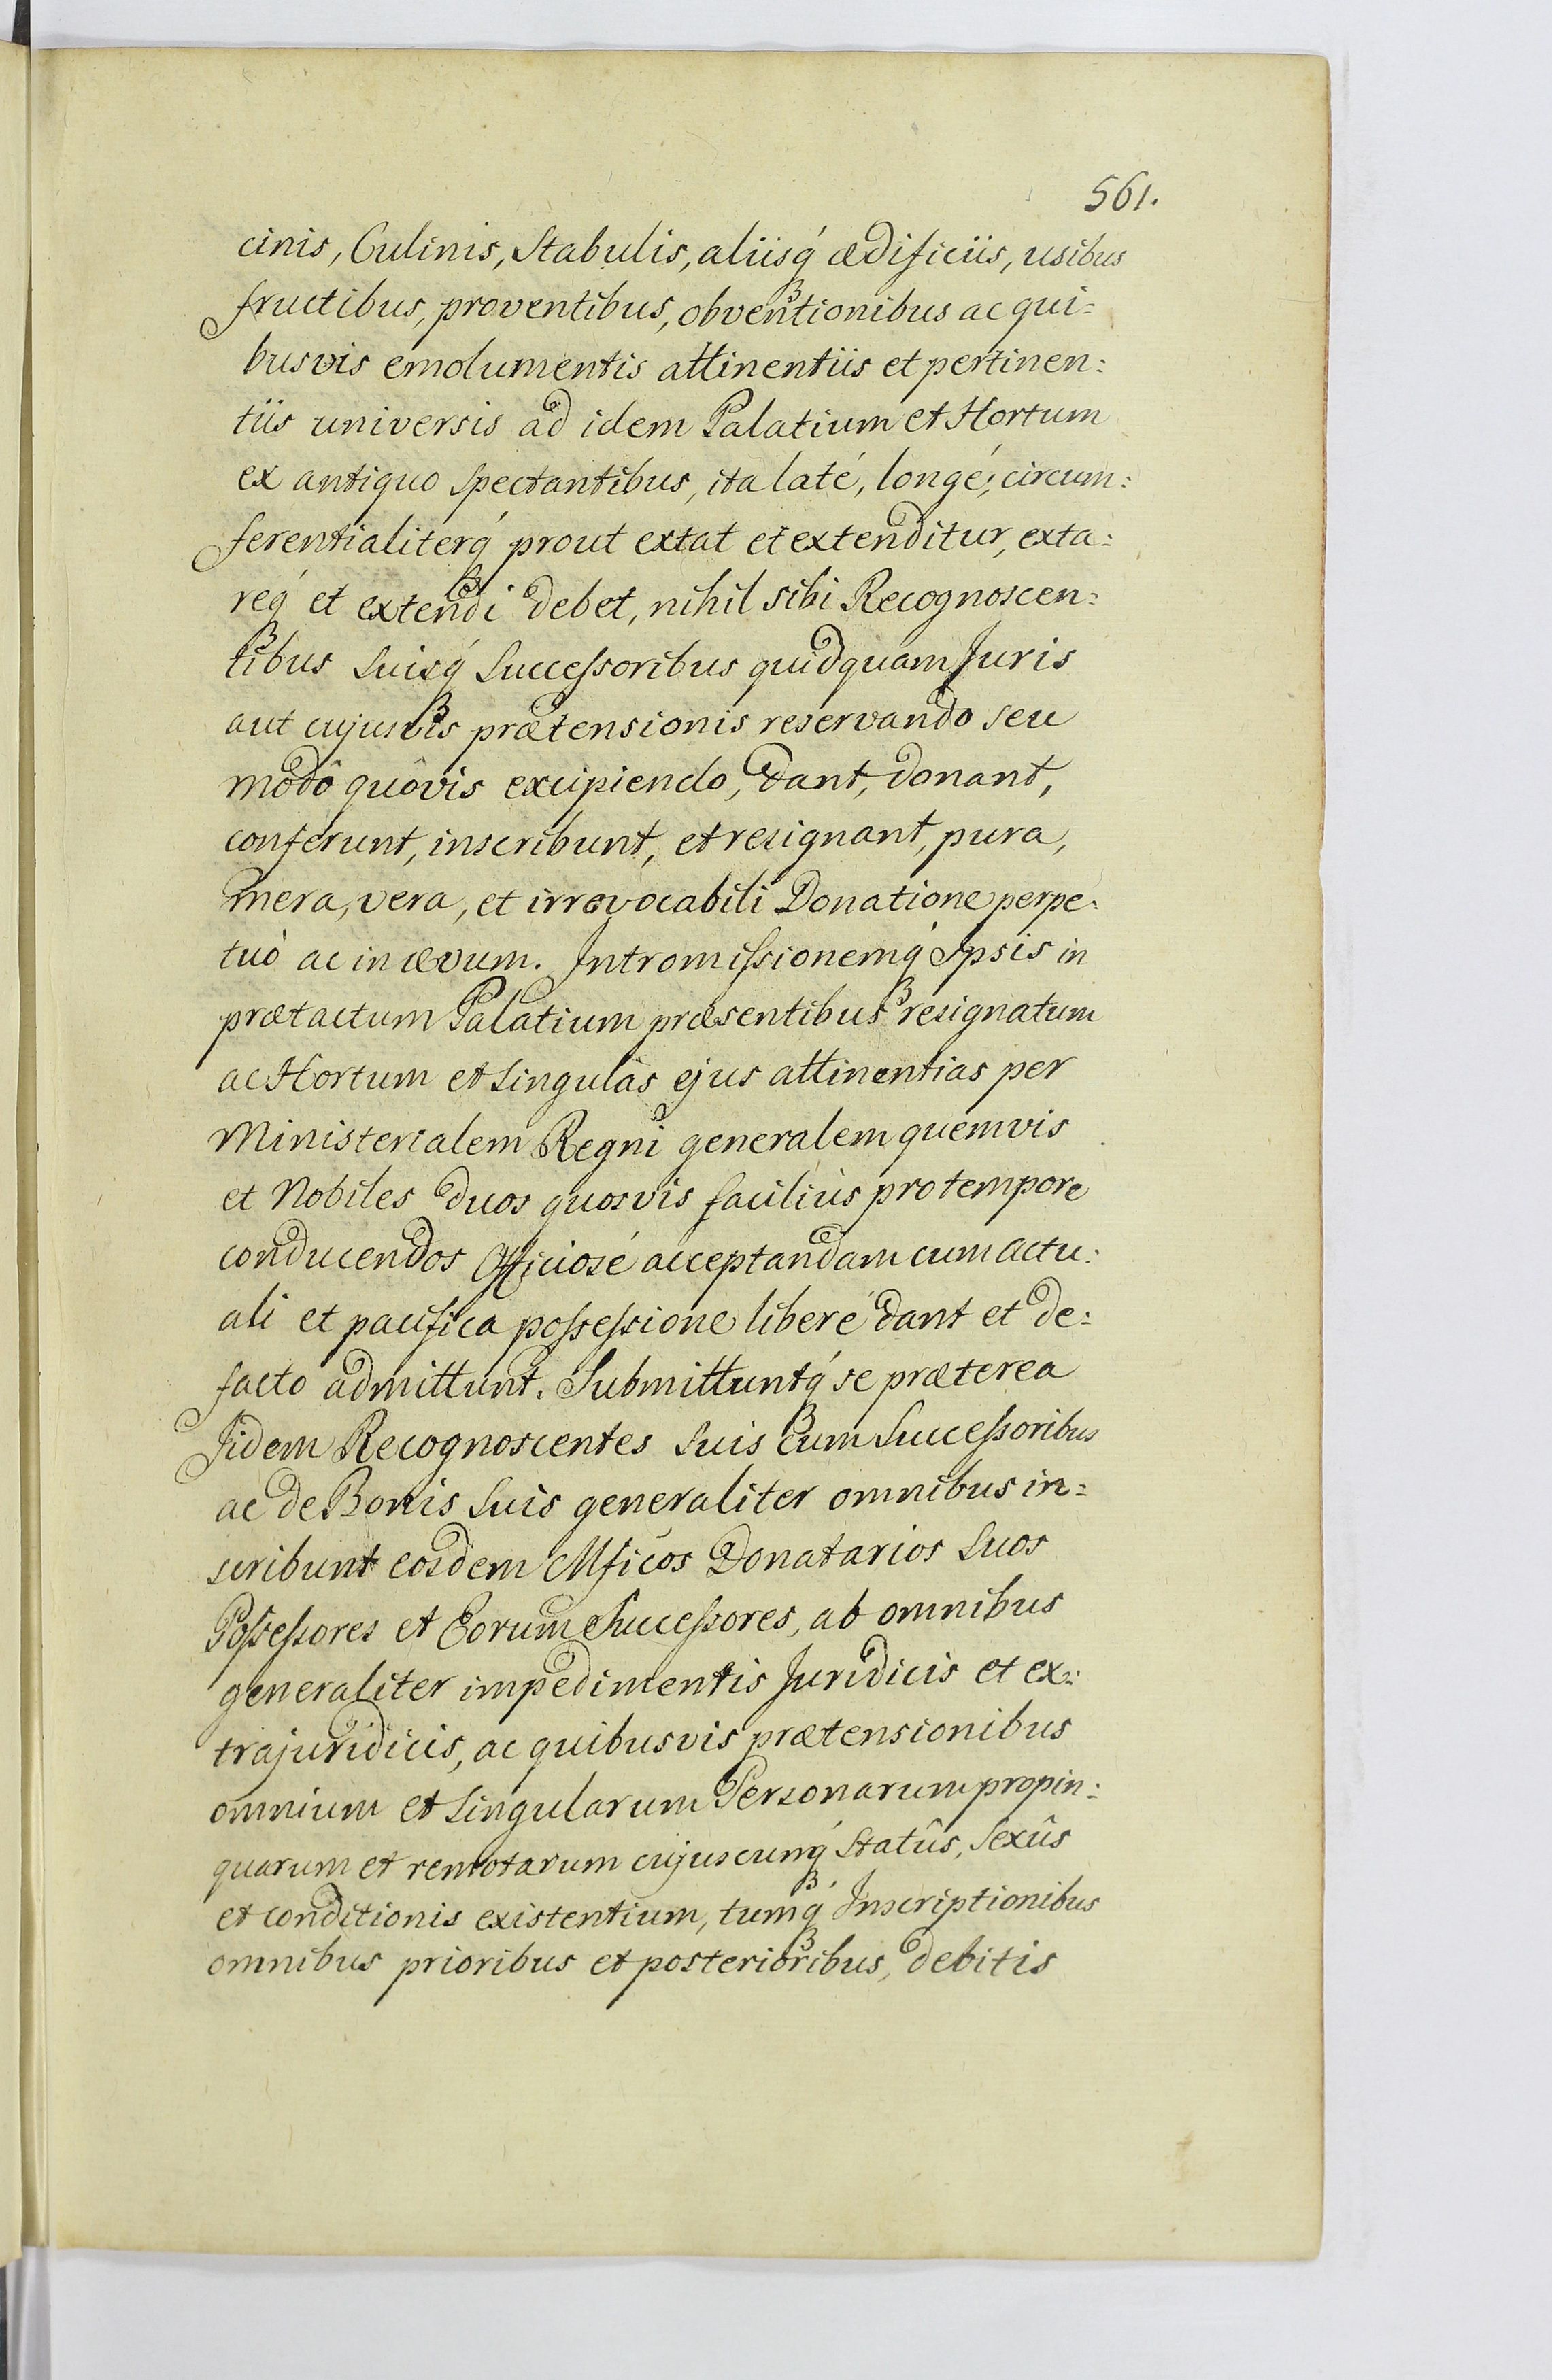 561.
cinis, Culinis, Stabulis, aliisq́ ædificiis, usibus
fructibus, proventibus, obventionibus ac qui=
busvis emolumentis attinentiis et pertinen:
tiis universis ad idem Palatium et Hortum
ex antiquo spectantibus, ita laté, longé, circum:
ferentialiterq́ prout extat et extenditur, exta:
req́ et extendi debet, nihil sibi Recognoscen:
tibus suisq́ Successoribus quidquam Juris
aut cujusvis prætensionis reservando seu
modô quôvis excipiendo, dant, donant,
conferunt, inscribunt, et resignant, pura,
mera, vera, et irrevocabili Donatione perpe:
tuò ac in ævum. Intromissionemq́ Ipsis in
prætactum Palatium præsentibus resignatum
ac Hortum et singulas ejus attinentias per
Ministerialem Regni generalem quemvis
et Nobiles duos quosvis facilius pro tempore
conducendos Officiosé acceptandam cum actu:
ali et pacifica possessione liberé dant et de:
facto admittunt. Submittuntq́ se præterea
Iidem Recognoscentes suis cum Successoribus
ac de Bonis suis generaliter omnibus in=
scribunt eosdem Mficos Donatarios suos
Possessores et Eorum Successores, ab omnibus
generaliter impedimentis Juridicis et ex:
trajuridicis, ac quibusvis prætensionibus
omnium et singularum Personarum propin:
quarum et remotarum cujuscunq́ Statûs, Sexûs
et conditionis existentium, tumq́ Inscriptionibus
omnibus prioribus et posterioribus, debitis